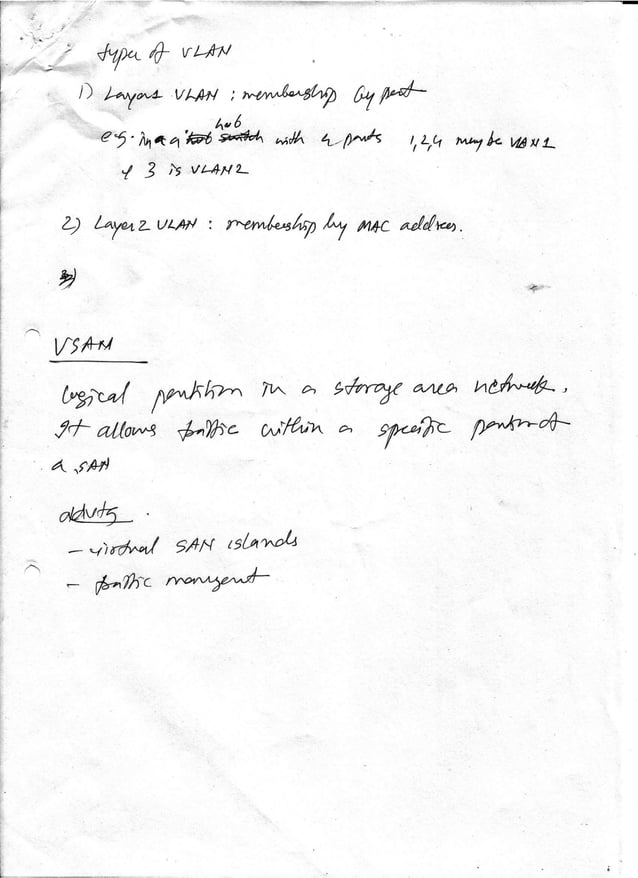 types of VLAN
1) Layer1 VLAN : membership by port
hub
e.g. in a with 4 ports 1,2,4 may be VLAN1
& 3 is VLAN2
2) Layer2 VLAN : membership by MAC address.
3)
VSAN
Logical partition in a storage area network.
It allows traffic within a specific portion of
a SAN
advtg
- virtual SAN islands
- traffic mangment